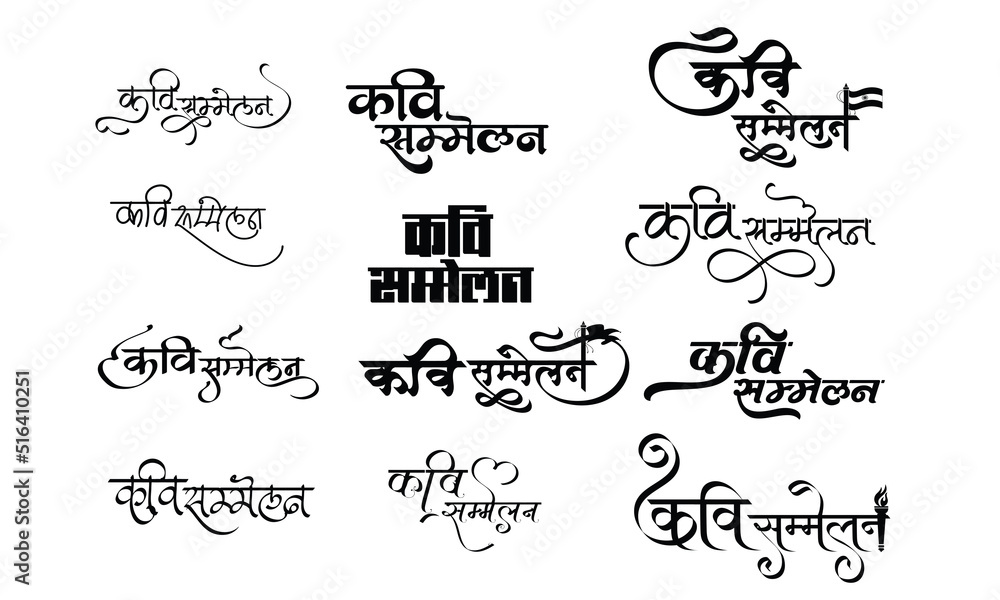 कवि सम्मेलन
कवि
सम्मेलन
कवि
सम्मेलन
कवि सम्मेलन
कवि
सम्मेलन
कवि सम्मेलन
कवि सम्मेलन
कवि सम्मेलन
कवि
सम्मेलन
कवि सम्मेलन
कवि
सम्मेलन
कवि सम्मेलन
Adobe Stock | #516410251